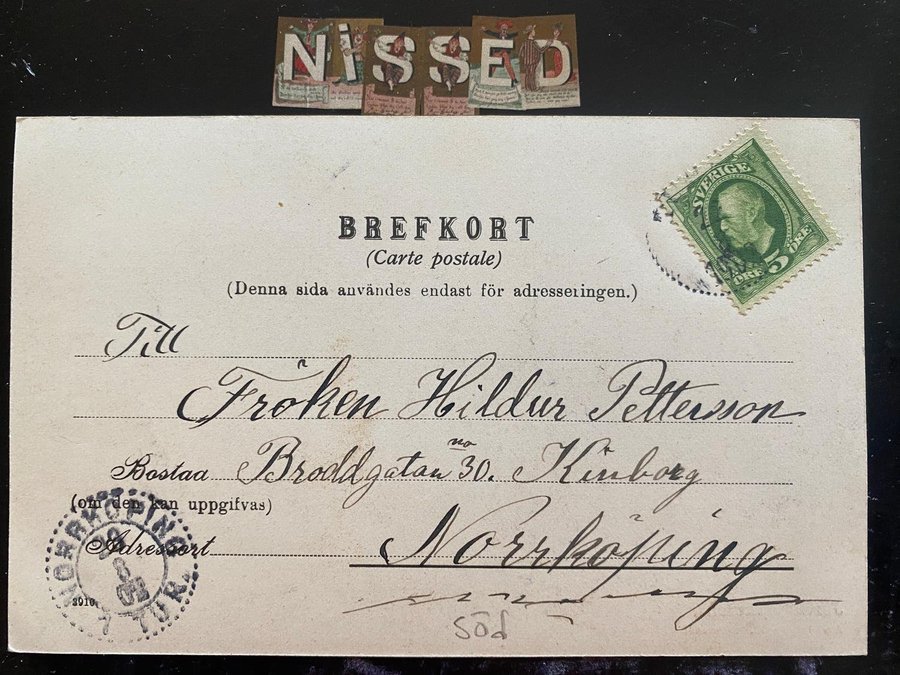 NiSSED
SVERIGE
5 ÖRE ÖRE
BREFKORT
(Carte postale)
(Denna sida användes endast för adresseringen.)
Till
Fröken Hildur Pettersson
Bostad Broddgatan no 30. Kinborg
(om den kan uppgifvas)
Adressort Norrköping
NORRKÖPING
1 TUR.
2910
söd